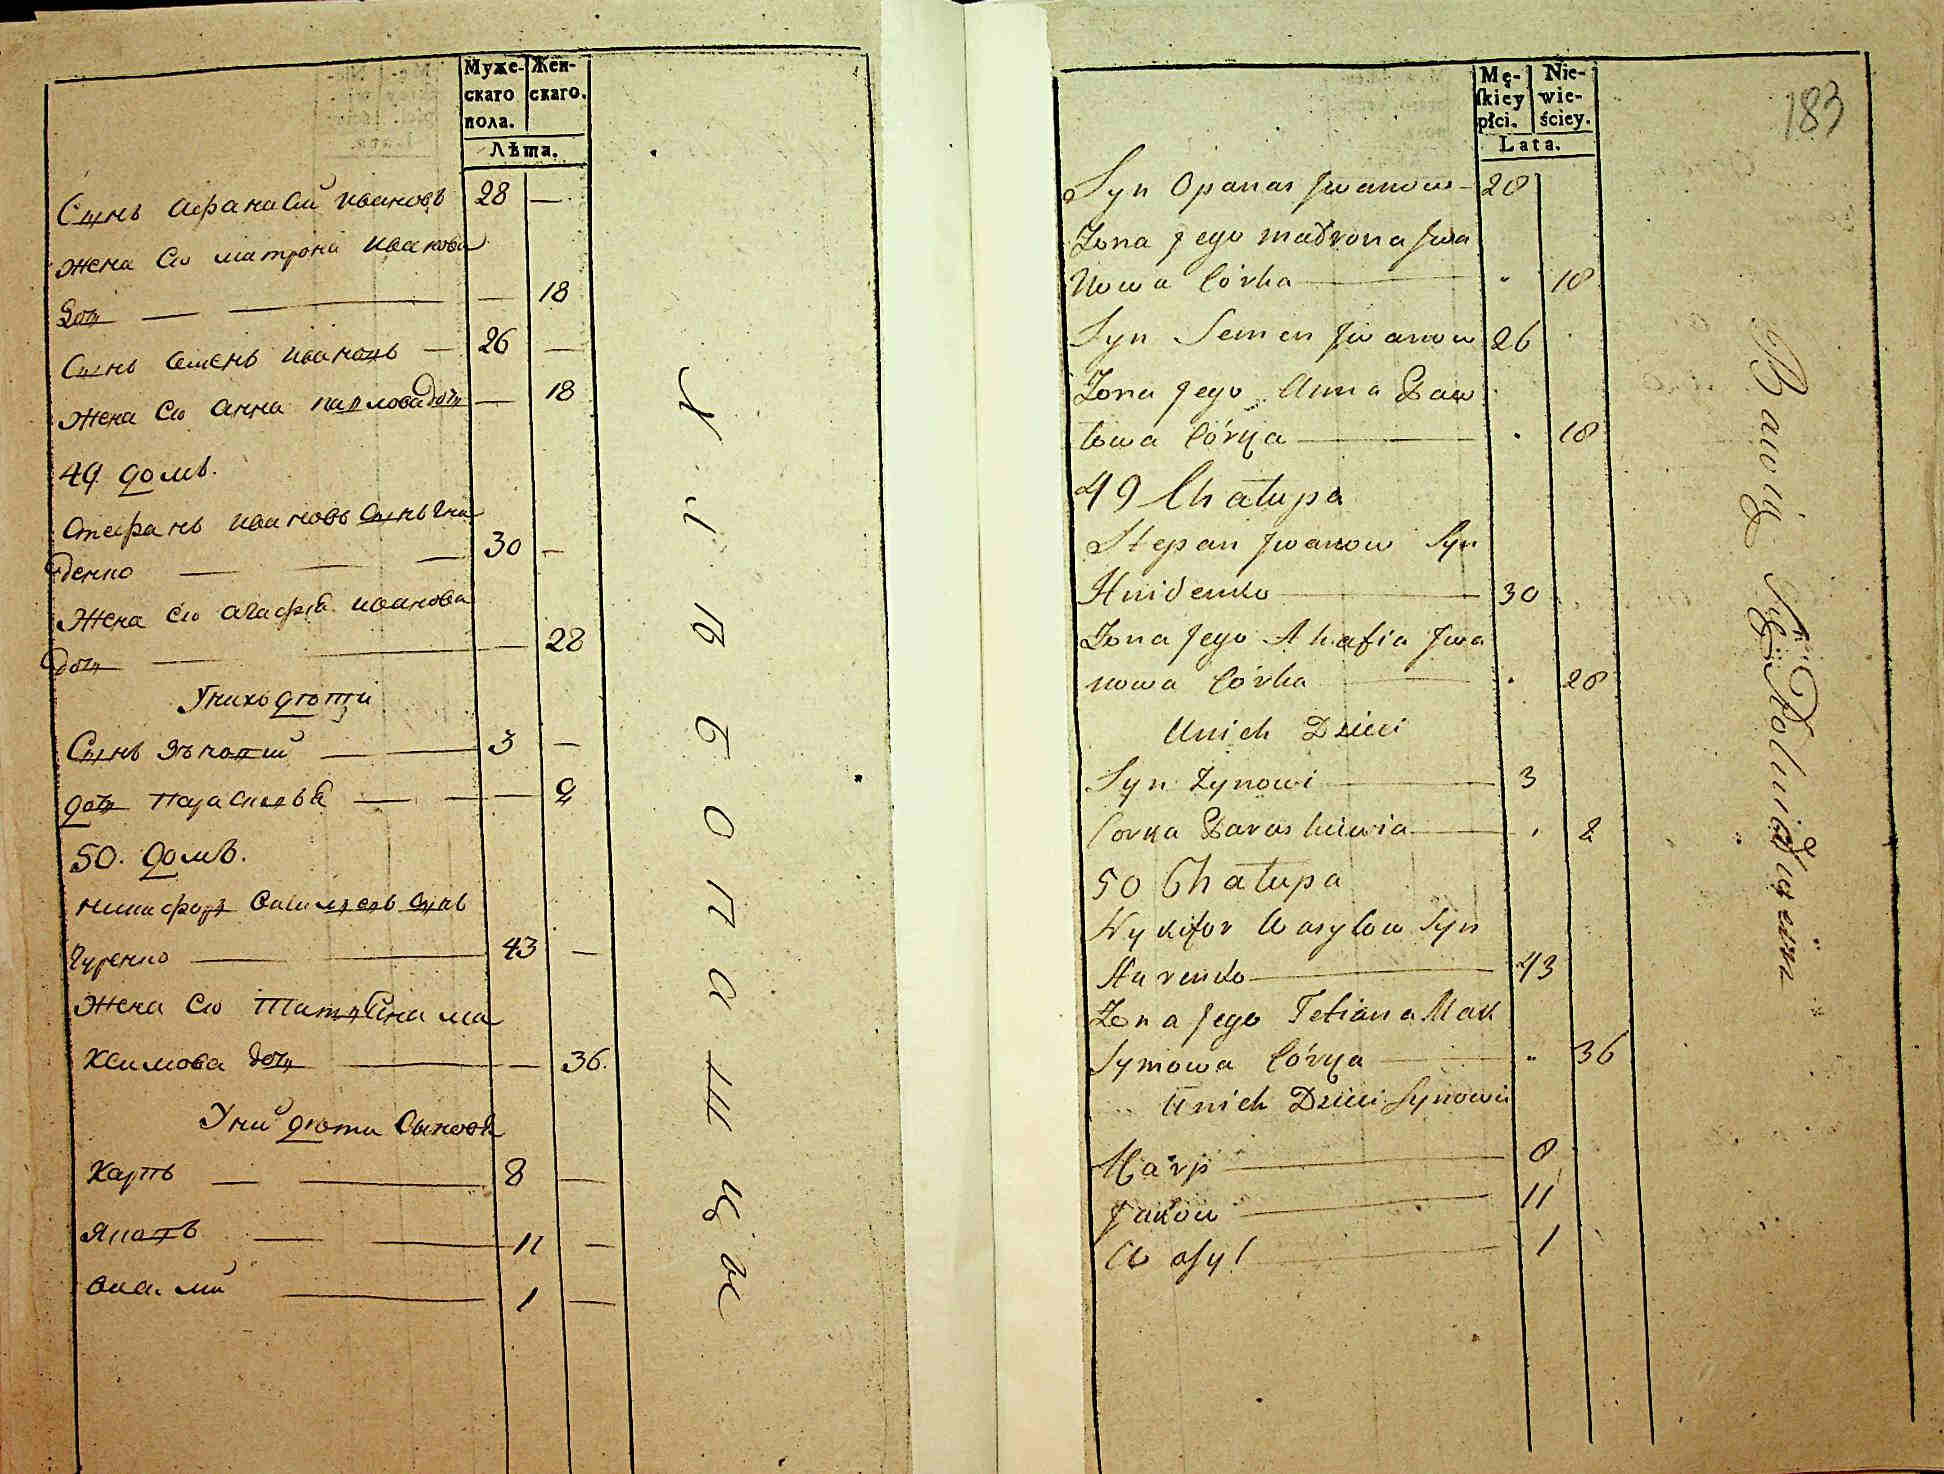 Муже-
скаго
пола.
Жен-
скаго.
Лѣта.
Сынъ Афанасій Ивановъ 28 —
Жена Его Матрона Иванова
дочь — — — 18
Сынъ Семенъ Ивановъ — 26 —
Жена Его Анна Павлова дочь — 18
49 домъ.
Стефанъ Ивановъ Сынъ Гни
денко — — — 30 —
Жена Его Агафія Иванова
дочь — — — 28
Унихъ дѣти
Сынъ Зѣновій — 3 —
дочь Параскевія — — — 2
50. домъ.
Никифоръ Васильевъ Сынъ
Гуренко — 43 —
Жена Его Татіяна Ма
ксимова дочь — — 36.
Уний дѣти Сыновя
Карпъ — — 8 —
Яковъ — — 11 —
Василій — 1 —
183
Mę-
ſkiey
płci.
Nie-
wie-
ściey.
Lata.
Syn Opanas Jwanow - 28
Zona Jego Madrona Jwa
nowa Córka — 18
Syn Semen Jwanow 26
Zona Jego Anna Paw
łowa Córka — 18
49 Chałupa
Stepan Jwanow Syn
Hnidenko — 30
Zona Jego Ahafia Jwa
nowa Córka — 28
Unich Dzieci
Syn Zynowi — 3
Corka Paraskiewia — 2
50 Chałupa
Nykifor Wasylow Syn
Hurenko — 43
Zona Jego Tetiana Mak
symowa Córka — 36
Unich Dzieci Synowie
Karp — 8
Jakow — 11
Wasyl — 1